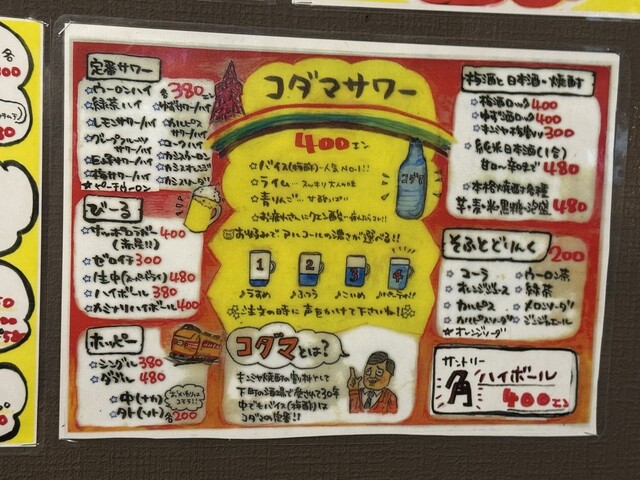 定番サワー
各380エン
☆ウーロンハイ
☆緑茶ハイ
☆レモンサワーハイ
☆グレープフルーツサワーハイ
☆梅サワーハイ
☆ピーチウーロン
☆ゆずサワーハイ
☆カルピスサワーハイ
☆コークハイ
☆カシスウーロン
☆カシスオレンジ
☆カシスソーダ
びーる
☆サッポロラガー 400
(赤星!!)
☆ゼロイチ 300
☆生中 480
☆ハイボール 380
☆カミナリハイボール 400
ホッピー
☆シングル 380
☆ダブル 480
中(ナカ)
外(ソト) 各200
コダマサワー
400エン
☆バイス(梅酢)…人気No.1!!
☆ライム…スッキリ大人の味
☆青りんご…甘酸っぱい
☆お疲れさんにクエン酸
お好みでアルコールの濃さが選べる!!
1 2 3 4
♪うすめ ♪ふつう ♪こいめ
ご注文の時に声をかけて下さいね!
コダマとは?
キンミヤ焼酎の割材として
下町の酒場で愛されて30年
中でもバイス(梅酢)は
コダマの定番!!
梅酒と日本酒・焼酎
☆梅酒ロック 400
☆ゆず酒ロック 400
☆キンミヤ梅割り 300
☆純米日本酒(1合)
甘口〜辛口まで 480
☆本格焼酎各種
芋・麦・米・黒糖・泡盛 480
そふとどりんく
200
☆コーラ
☆オレンジジュース
☆カルピス
☆カルピスソーダ
☆オレンジソーダ
☆ウーロン茶
☆緑茶
☆メロンソーダ
☆ジンジャエール
サントリー
角ハイボール
400エン